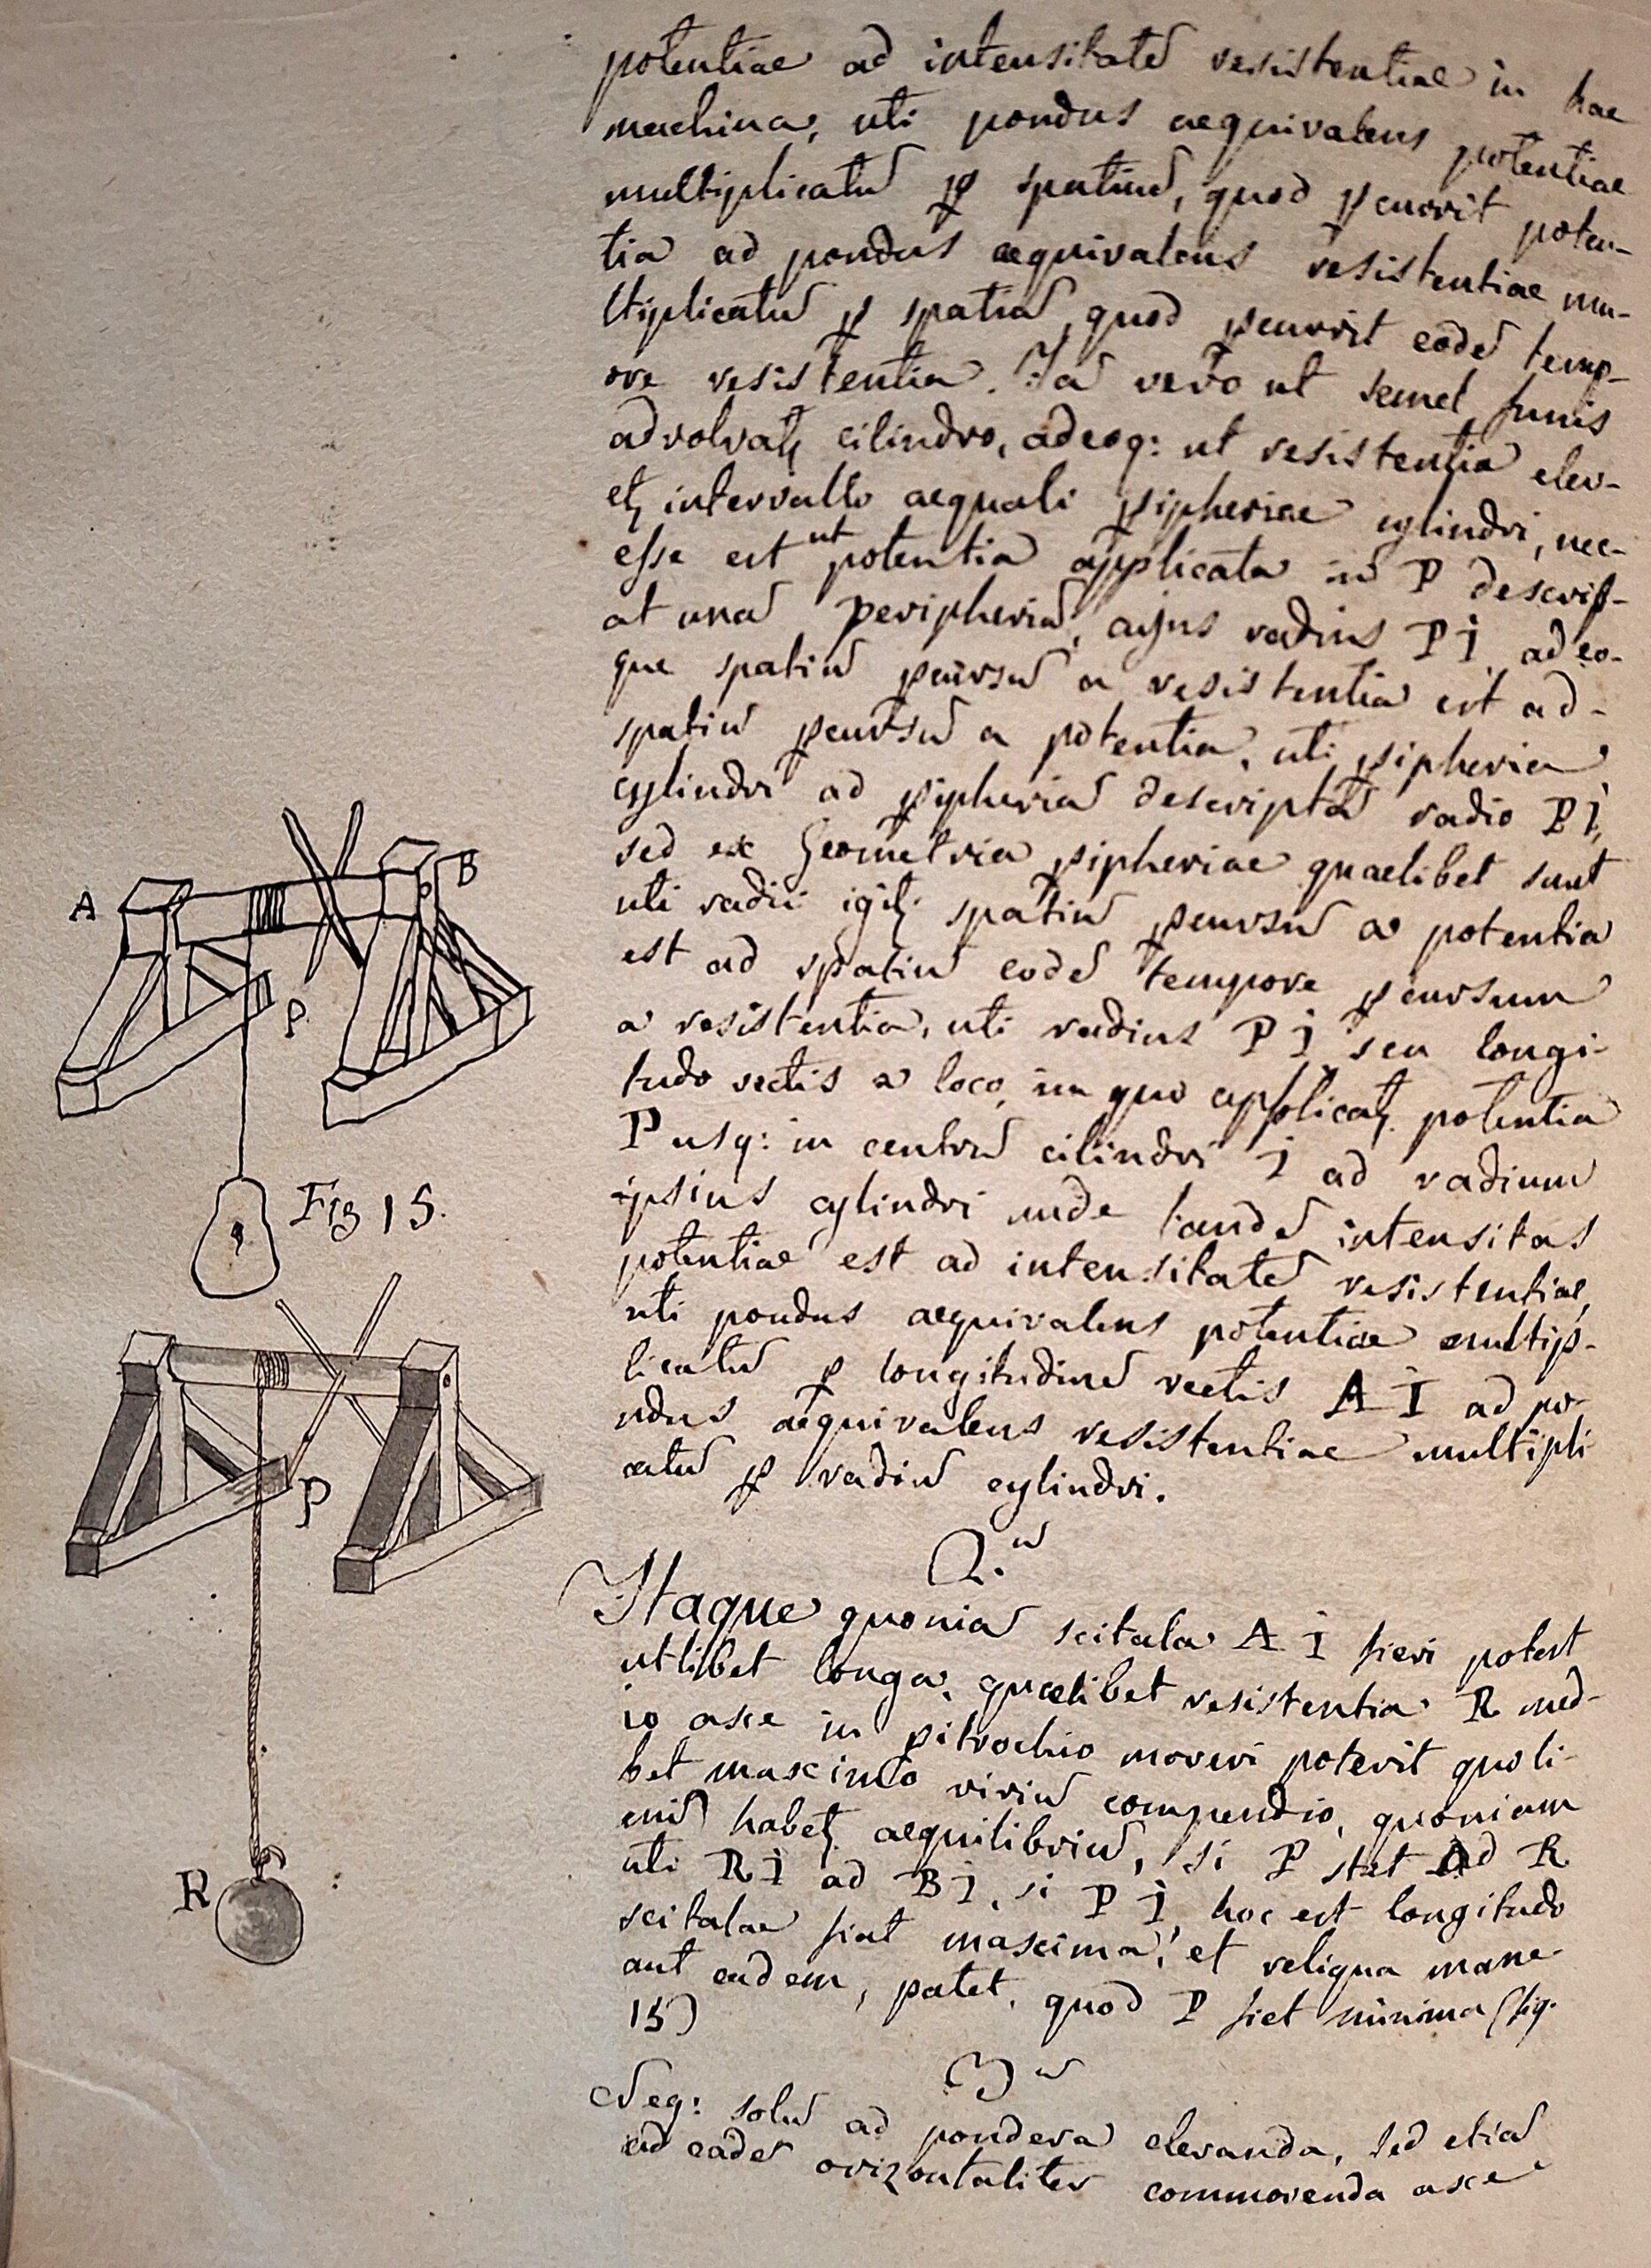 potentiae ad intensitatē resistentiae in hac
machina, uti pondus aequivalens potentiae
multiplicatū ꝑ spatiū, quod ꝑcurrit poten-
tia ad pondus aequivalens resistentiae mu-
ltiplicatū ꝑ spatiū, quod ꝑcurrit eodē temp-
ore resistentia. Iā vero ut semel funis
advolvatꝫ cilindro, adeoq: ut resistentia elev-
etꝫ intervallo aequali ꝑipheriae cylindri, nec-
esse est ut potentia applicata in P descrip-
at unā peripheriā, cujus radius P I, adeo-
que spatiū ꝑcursū a resistentia est ad-
spatiū ꝑcursū a potentia, uti ꝑipheria
cylindri ad ꝑipheriā descriptā radio P I,
sed ex Geometria ꝑipheriae quaelibet sunt
uti radii igitꝫ spatiū ꝑcursū a potentia
est ad spatiū eodē tempore ꝑcursum
a resistentia, uti radius P I seu longi-
tudo vectis a loco, in quo applicatꝫ potentia
P usq: in centrū cilindri I ad radium
ipsius cylindri unde tandē intensitas
potentiae est ad intensitatē resistentiae,
uti pondus aequivalens potentiae multip-
licatū ꝑ longitudinē vectis A I ad po-
ndus aequivalens resistentiae multipli
catū ꝑ radiū cylindri.
2.ū
Itaque quoniā scitala A I fieri potest
utlibet longa, quaelibet resistentia R med-
io axe in ꝑitrochio moveri poterit quoli-
bet maximo viriū compendio, quoniam
enī habetꝫ aequilibriū, si P stet ad R
uti R I ad B I, si P I, hoc est longitudo
scitalae fiat maxima, et reliqua mane-
ant eadem, patet, quod P fiet minima (fig.
15)
3ū
Neq: solū ad pondera elevanda, sed etiā
ad eadē orizontaliter commovenda axe
A
B
P
Fig 15.
P
R